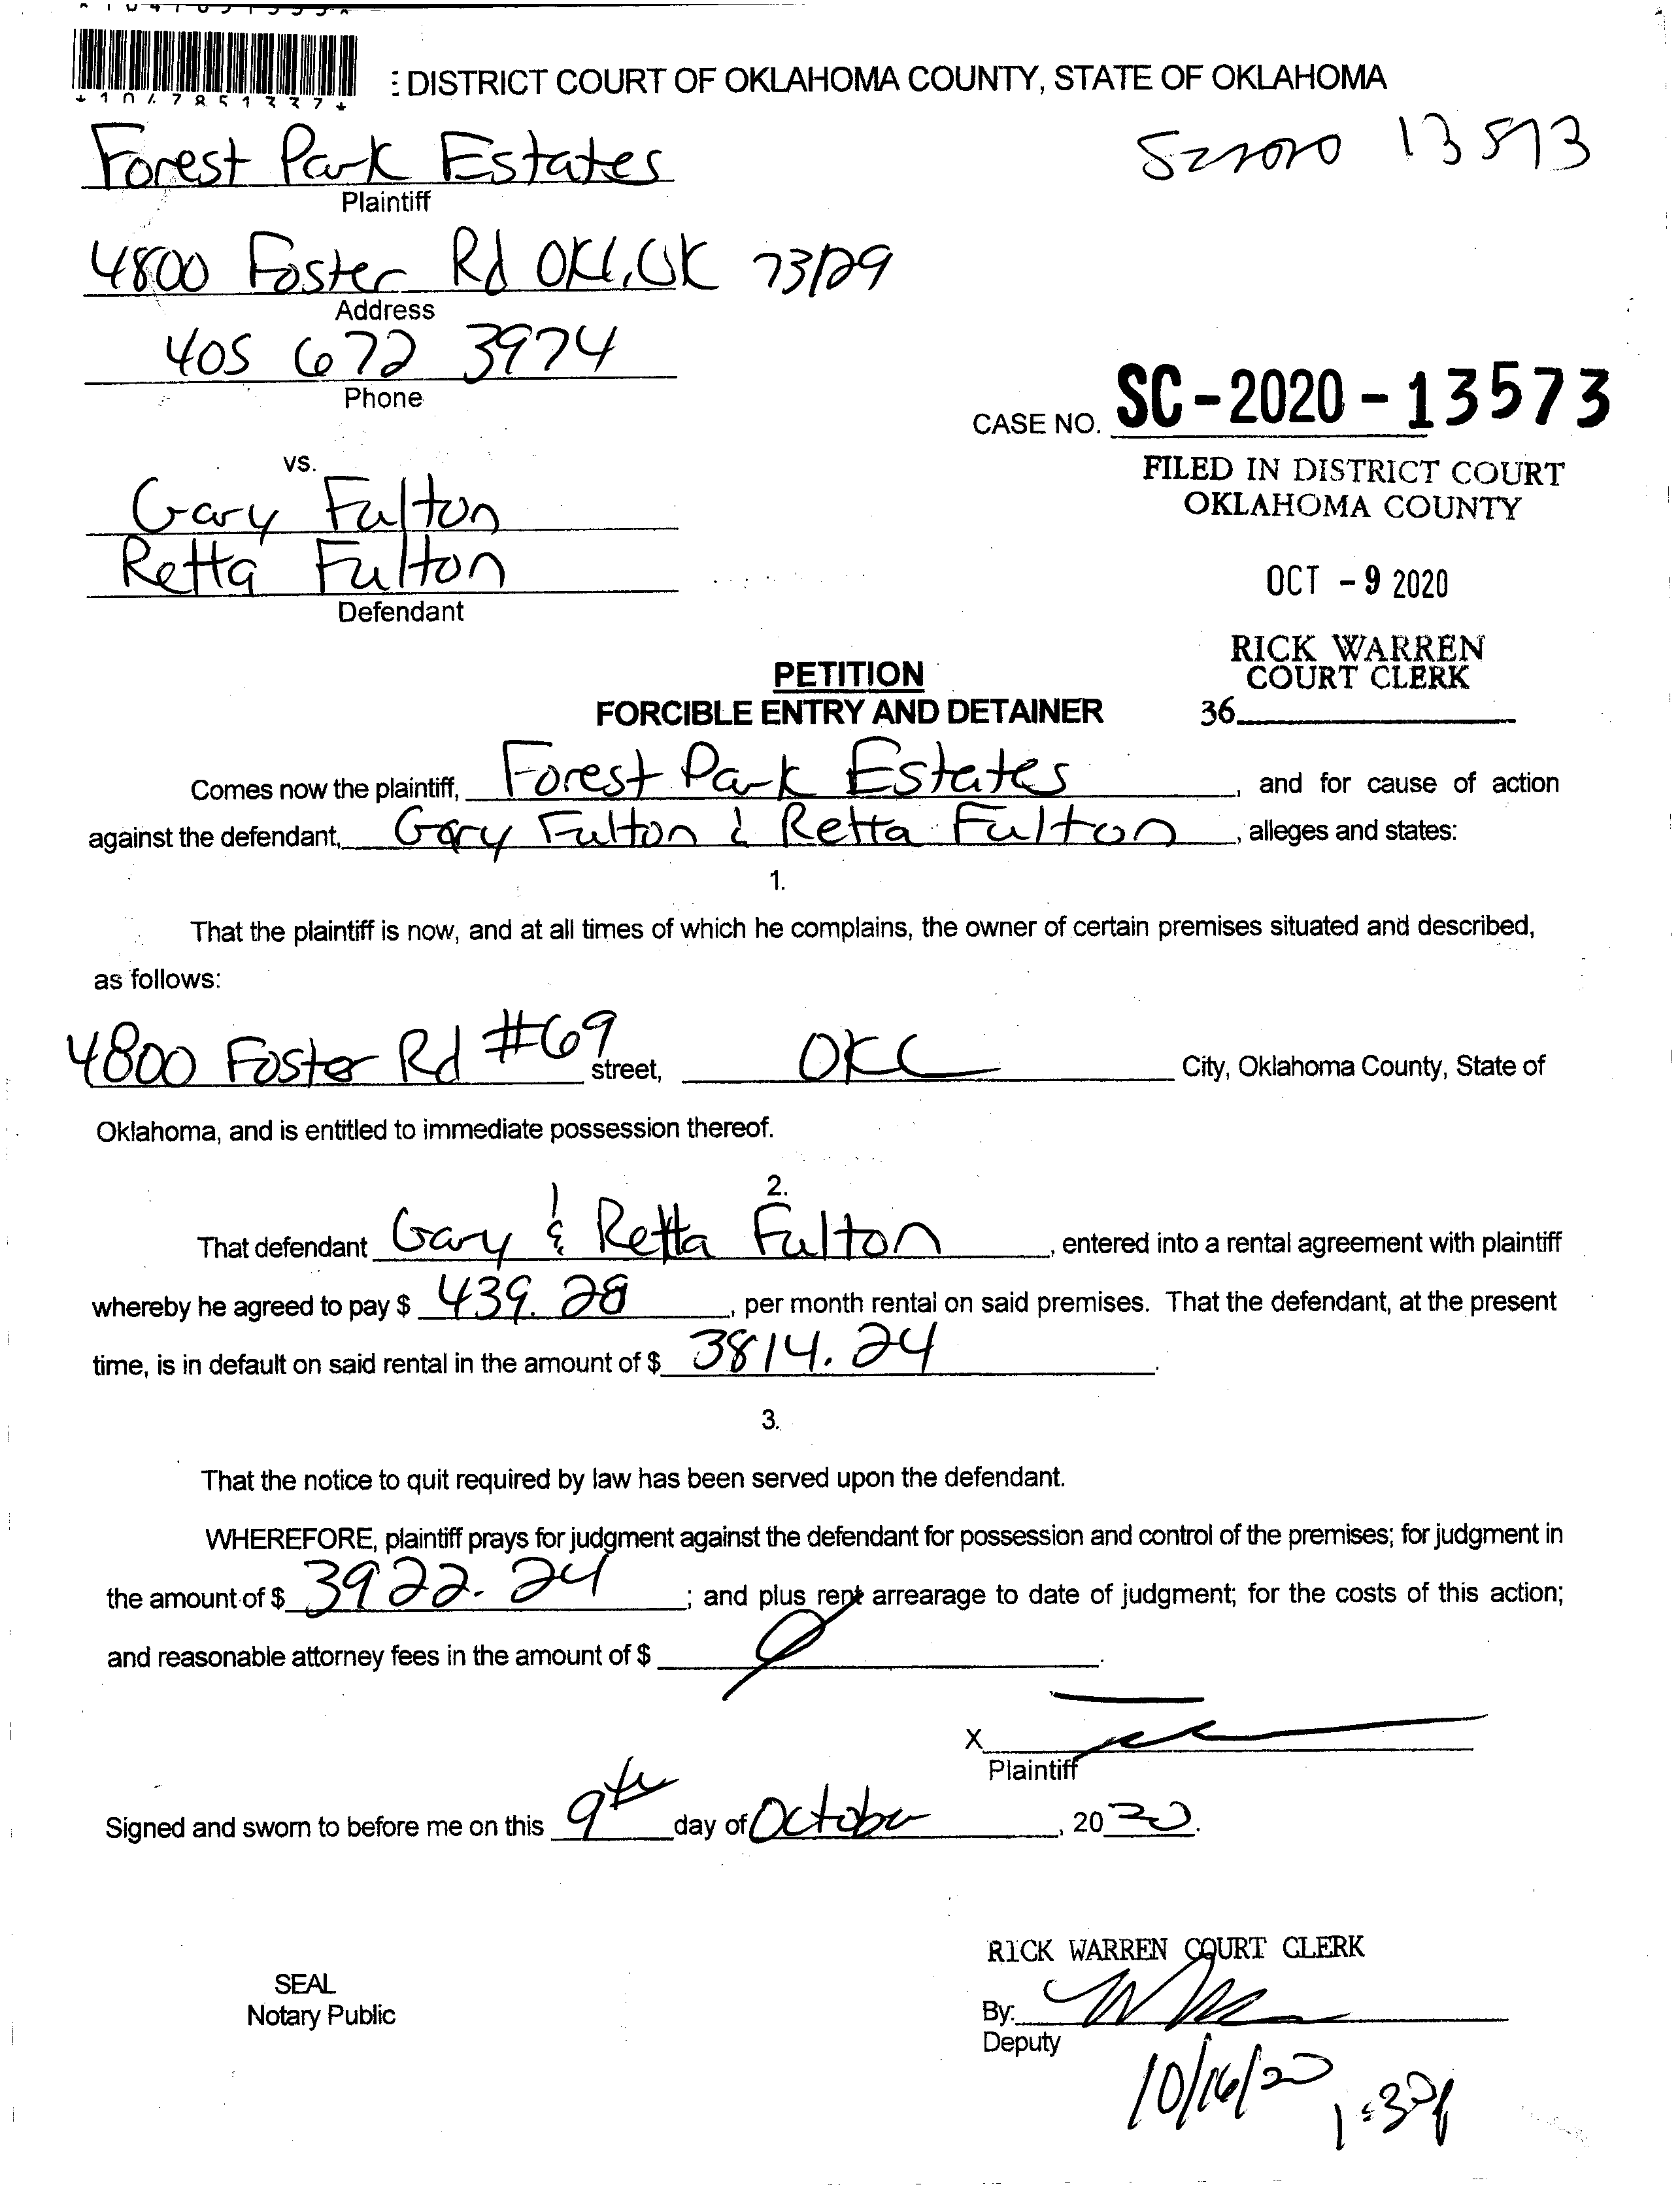 *1047851337*
: DISTRICT COURT OF OKLAHOMA COUNTY, STATE OF OKLAHOMA
Forest Park Estates
13573
Plaintiff
4800 Foster Rd OKC, OK 73129
Address
405 672 3974
Phone
CASE NO. SC-2020-13573
FILED IN DISTRICT COURT
OKLAHOMA COUNTY
vs.
Gary Fulton
Retta Fulton
Defendant
OCT -9 2020
RICK WARREN
COURT CLERK
36
PETITION
FORCIBLE ENTRY AND DETAINER
Comes now the plaintiff, Forest Park Estates, and for cause of action
against the defendant, Gary Fulton & Retta Fulton, alleges and states:
1.
That the plaintiff is now, and at all times of which he complains, the owner of certain premises situated and described,
as follows:
4800 Foster Rd #69 street, OKC City, Oklahoma County, State of
Oklahoma, and is entitled to immediate possession thereof.
2.
That defendant Gary & Retta Fulton, entered into a rental agreement with plaintiff
whereby he agreed to pay $ 439.28, per month rental on said premises. That the defendant, at the present
time, is in default on said rental in the amount of $ 3814.24.
3.
That the notice to quit required by law has been served upon the defendant.
WHEREFORE, plaintiff prays for judgment against the defendant for possession and control of the premises; for judgment in
the amount of $ 3922.24; and plus rent arrearage to date of judgment; for the costs of this action;
and reasonable attorney fees in the amount of $
X
Plaintiff
Signed and sworn to before me on this 9th day of October, 2020.
RICK WARREN COURT CLERK
SEAL
Notary Public
By:
Deputy
10/16/20
1:30p